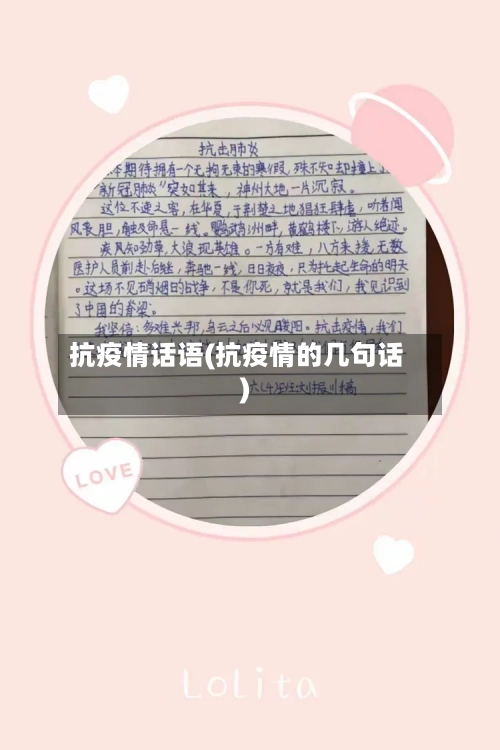 抗击肺炎
本期待拥有一个无拘无束的寒假,殊不知却撞上
"新冠肺炎"突如其来,神州大地一片沉寂。
这位不速之客,在华夏,于荆楚之地猖狂肆虐,听着闻
风丧胆,触及命悬一线。鹦鹉洲畔,黄鹤楼下,游人绝迹。
疾风知劲草,大浪现英雄。一方有难,八方来援,无数
医护人员前赴后继,奔驰一线,日日夜夜,只为托起生命的明天
。这场不见硝烟的战争,不是你死,就是我们,我见识到
了中国的脊梁。
我坚信:多难兴邦,乌云之后必见暖阳。抗击疫情,我们
抗疫情话语(抗疫情的几句话
)
六(4)班
LOVE
Lolita